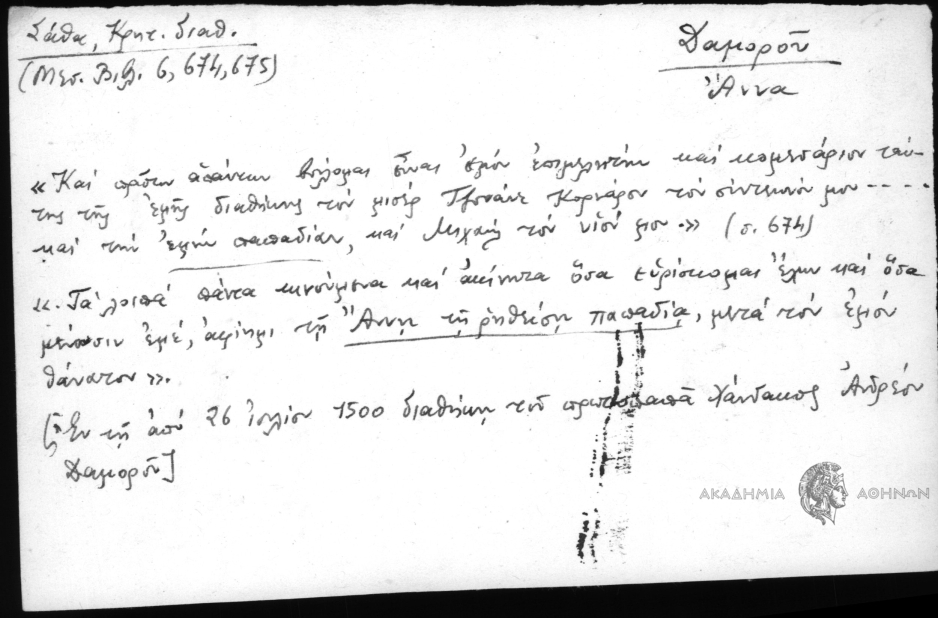 Σάθα, Κρητ. διαθ.
(Μεσ. Βιβλ. 6, 674, 675)
Δαμοροῦ
Ἄννα
«Καί πρῶτον ἁπάντων βούλομαι εἶναι ἐμόν ἐπιμελητήν καί κομεσάριον ταύ-
της τῆς ἐμῆς διαθήκης τόν μισέρ Τζουάνε Κορνάρον τόν σύντεκνόν μου -----
καί τήν ἐμήν παπαδίαν, καί Μιχαήλ τόν υἱόν μου.» (σ. 674)
«. Τά λοιπά πάντα κινούμενα καί ἀκίνητα ὅσα εὑρίσκομαι ἔχων καί ὅσα
μένουσιν ἐμέ, ἀφίημι τῇ Ἄννῃ τῇ ῥηθείσῃ παπαδίᾳ, μετά τόν ἐμόν
θάνατον».
[Ἐν τῇ ἀπό 26 Ἰουλίου 1500 διαθήκῃ τοῦ πρωτοπαπᾶ Χάνδακος Ἀνδρέου
Δαμοροῦ]
ΑΚΑΔΗΜΙΑ ΑΘΗΝΩΝ